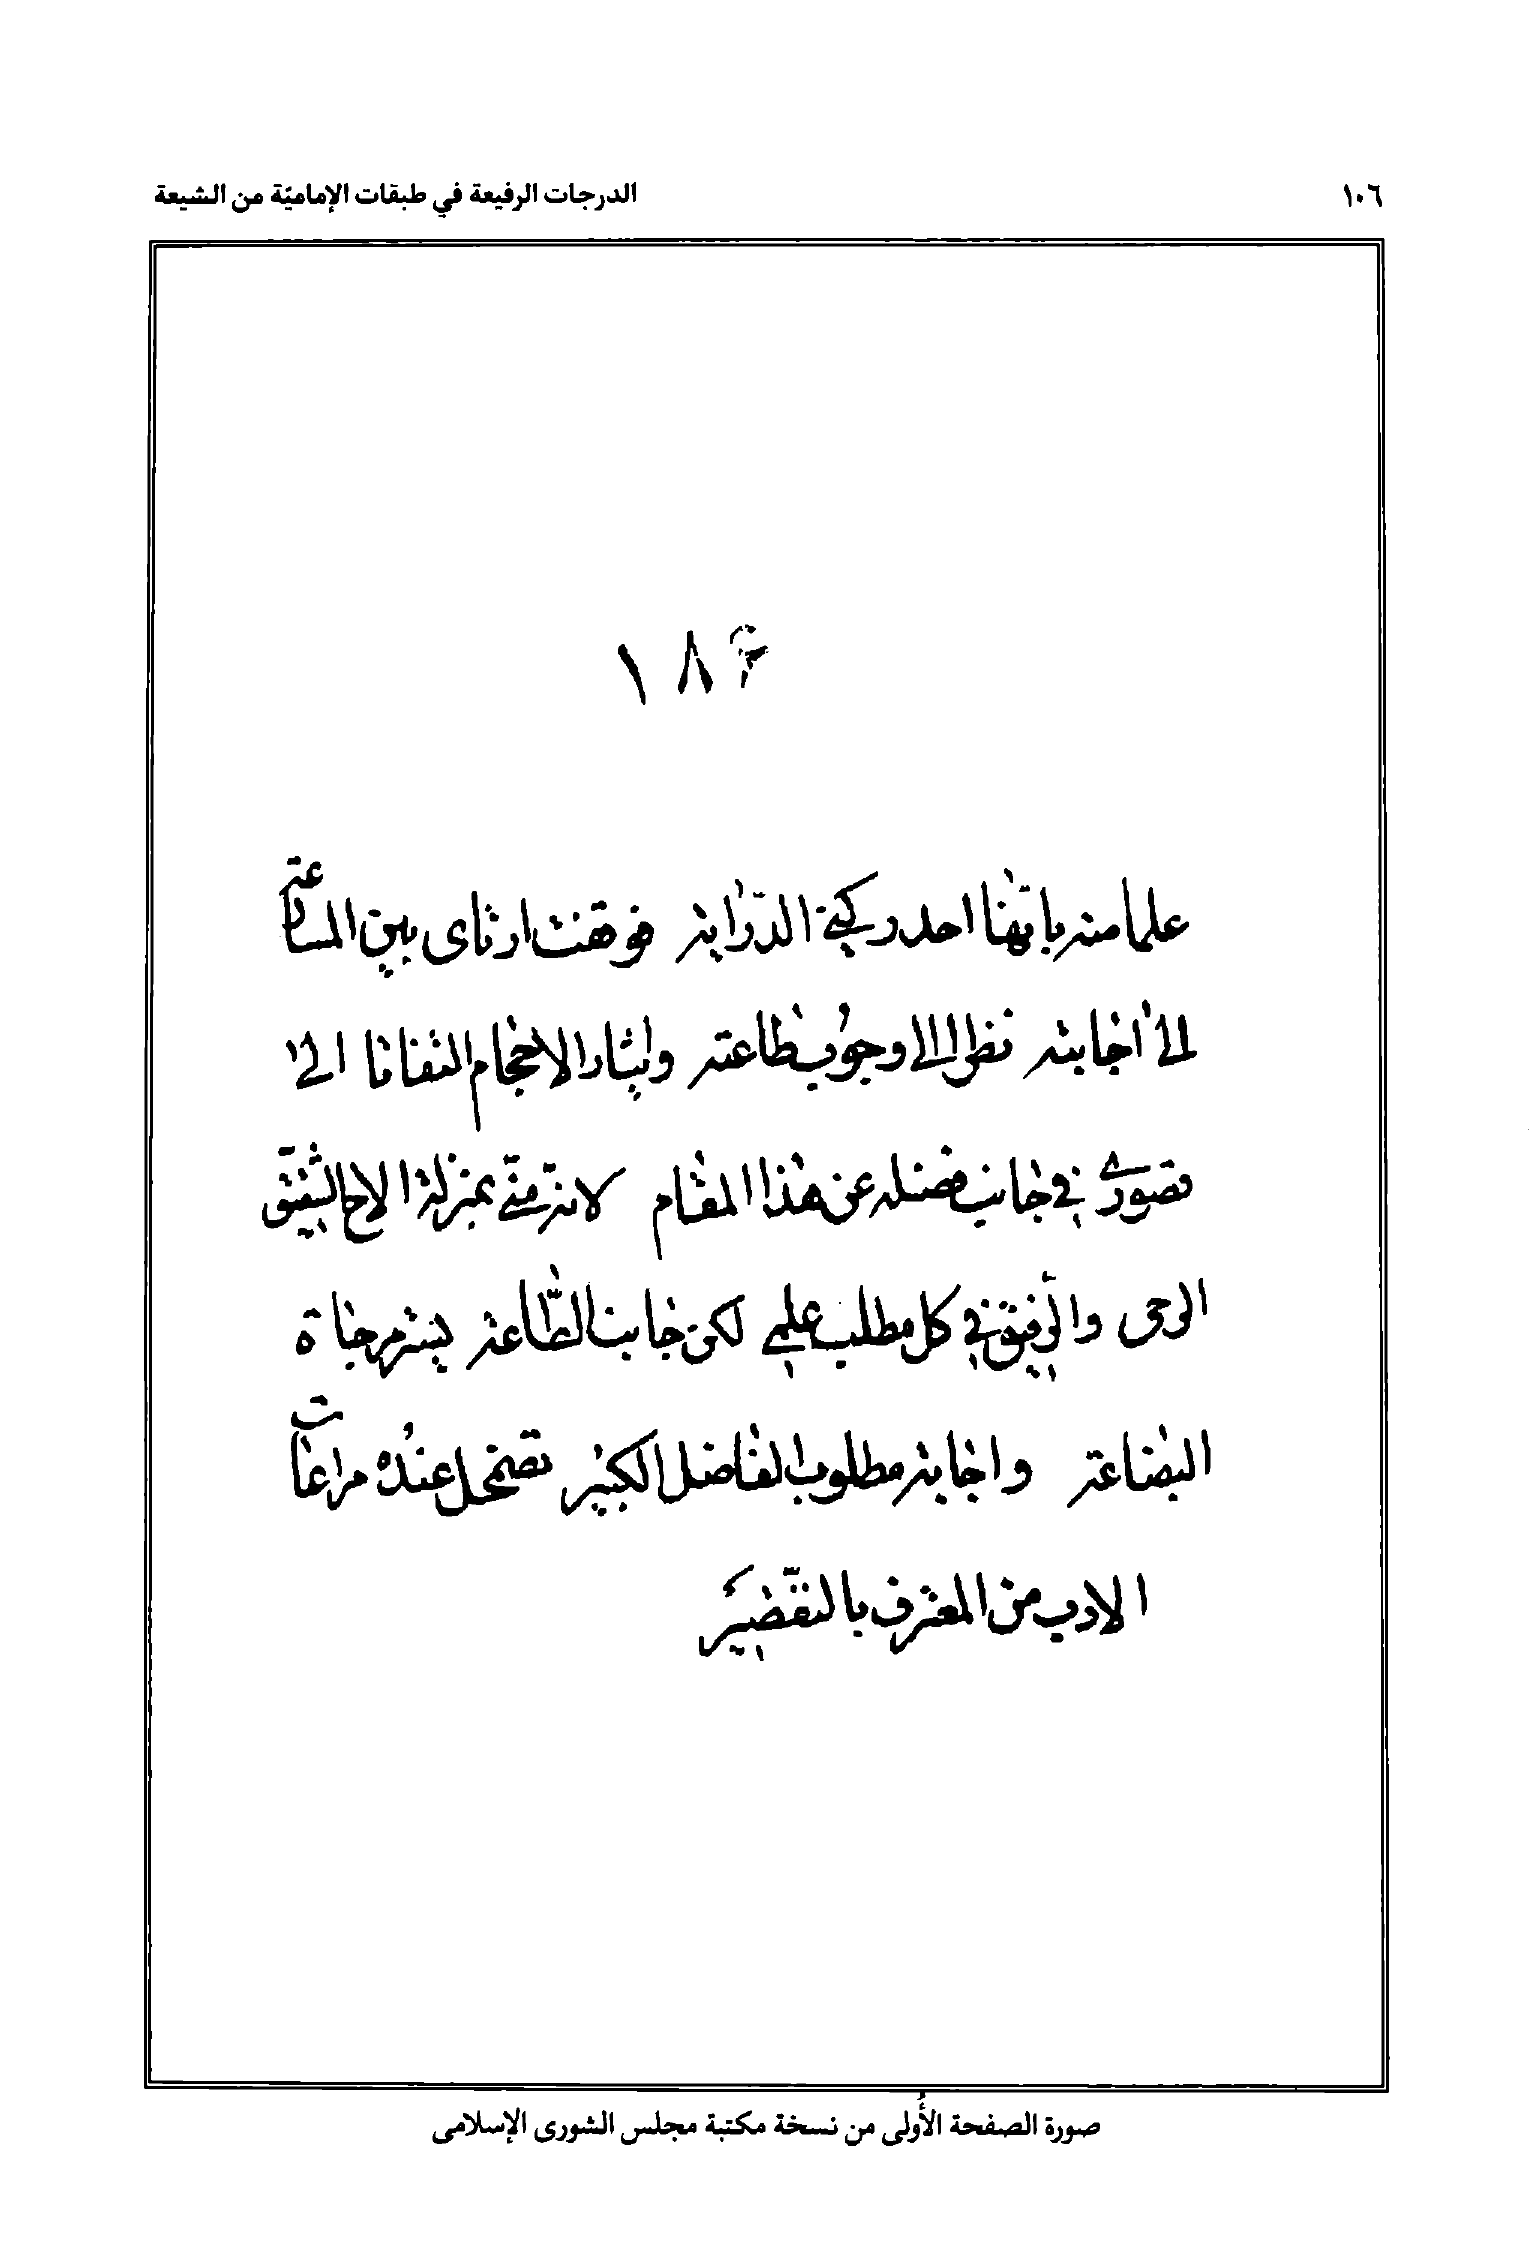 ١٠٦ الدرجات الرفيعة في طبقات الإماميّة من الشيعة
١٨۶
علما منه بانها احد ركنى الدّراية فوقفت ارتاى بين المساعة
الى اجابته نظرا الى وجوب طاعته وايثار الاحجام التفاتا الى
قصورى فى جانب فضله عن هذا المقام لانه منّى بمنزلة الاخ الشفيق
الوحى والرفيق فى كل مطلب علمى لكن جانب الطّاعة يستر مزجاة
البضاعة واجابة مطلوب الفاضل الكبير تضمحل عنده مراعات
الادب من المعترف بالتقصير
صورة الصفحة الأُولى من نسخة مكتبة مجلس الشورى الإسلامى